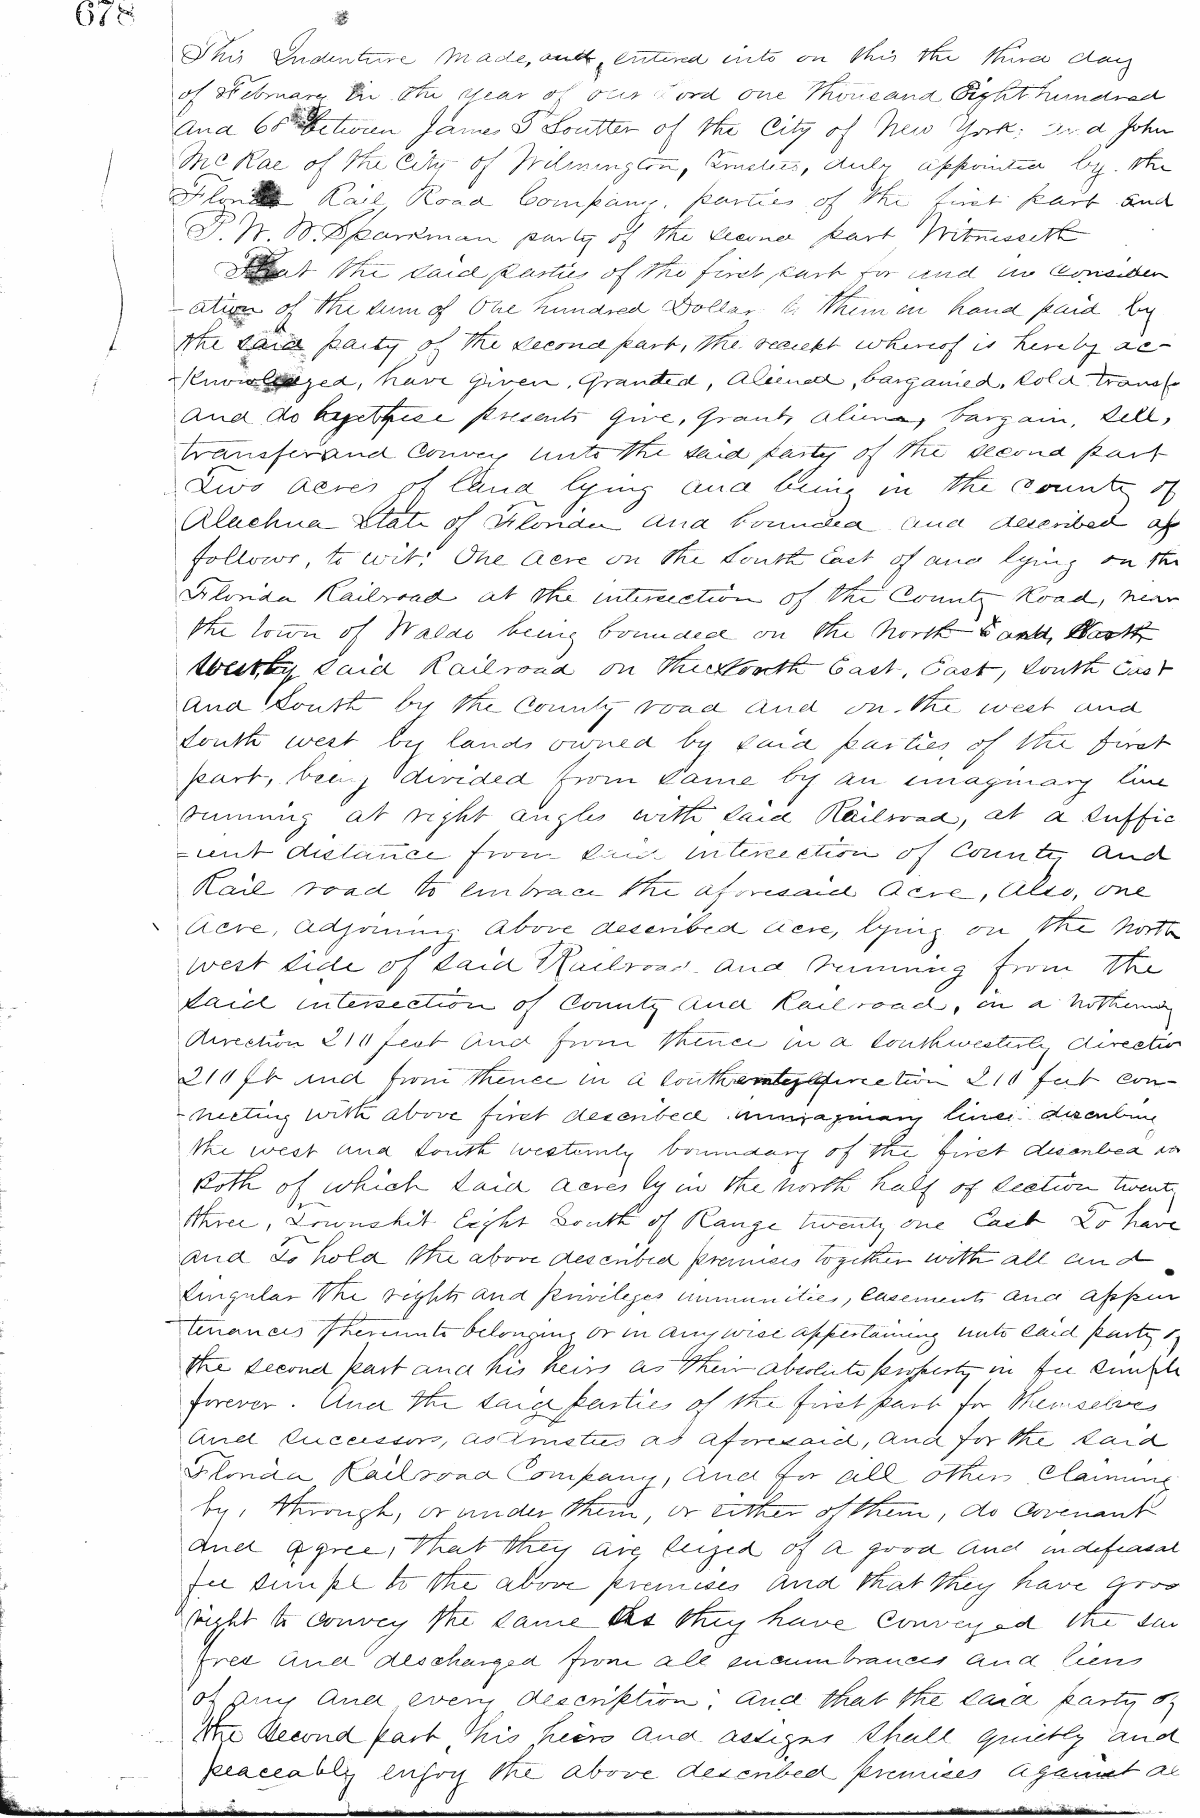 678
This Indenture made, and, entered into on this the third day
of February in the year of our Lord one thousand Eight hundred
and 68 between James T Soutter of the City of New York; and John
McRae of the City of Wilmington, Trustees, duly appointed by the
Florida Rail Road Company, parties of the first part and
P. W. W. Sparkman party of the second part Witnesseth
That the said parties of the first part for and in consider
-ation of the sum of One hundred Dollar to them in hand paid by
the said party of the second part, the receiekt whereof is hereby ac-
-knowledged, have given, granted, aliened, bargained, sold transf
and do by these presents give, grant, alien, bargain, sell,
transfer and convey unto the said party of the second part
Two acres of land lying and being in the county of
Alachua State of Florida and bounded and described as
follows, to wit: One acre on the South East of and lying on the
Florida Railroad at the intersection of the County Road, near
the town of Waldo being bounded on the North and North
west, by said Railroad on the North East, East, South East
and South by the County road and on the west and
South west by lands owned by said parties of the first
part, being divided from same by an imaginary line
running at right angles with said Railroad, at a suffic
=ient distance from said intersection of County and
Rail road to embrace the aforesaid acre, Also, one
acre, adjoining above described acre, lying on the North
west side of said Railroad and running from the
said intersection of County and Railroad, in a
direction 210 feet and from thence in a Southwesterly directio
210 ft and from thence in a direction 210 feet con-
-necting with above first described immaginary line
the west and South westernly boundary of the first described
Both of which said acres ly in the north half of section twenty
three, Townshit Eight South of Range twenty one East To have
and To hold the above described premises together with all and
singular the rights and privileges immunities, easements and appur
-tenances thereunto belonging or in any wise appertaining unto said party of
the second part and his heirs as their absolute property in fee simple
forever. And the said parties of the first part for themselves
and successors, as Trustees as aforesaid, and for the said
Florida Railroad Company, and for all others claiming
by, through, or under them, or either of them, do covenant
and agree, that they are seized of a good and indefeasal
fee simpl to the above premises and that they have good
right to convey the same as they have conveyed the sam
free and descharged from all encumbrances and liens
of any and every description; and that the said party of
the second part, his heirs and assigns shall quietly and
peaceably enjoy the above described premises against al